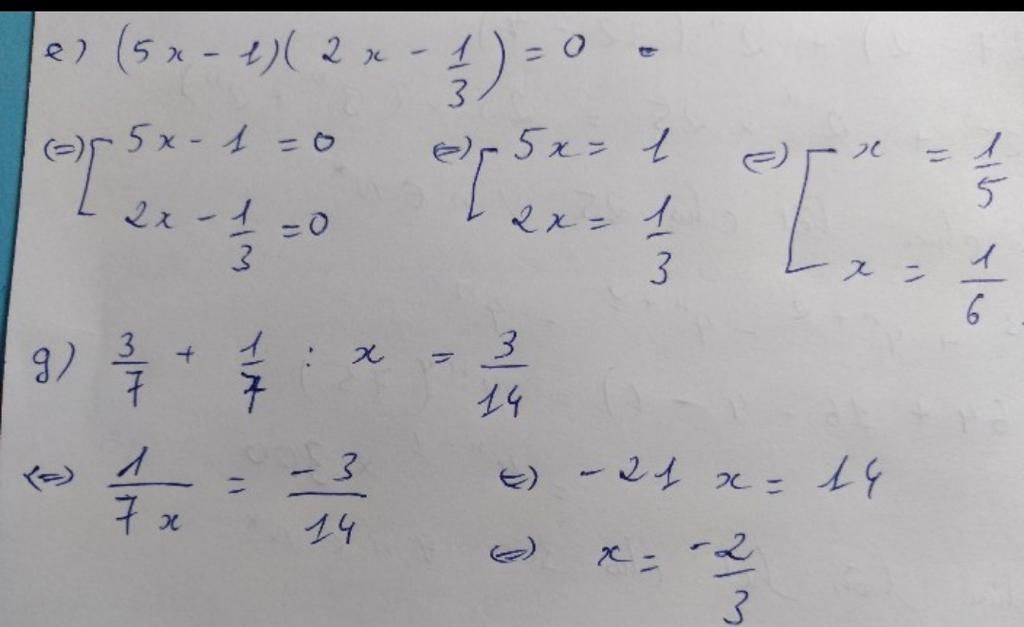 e) (5x - 1)(2x - 1/3) = 0
(=) [ 5x - 1 = 0 (=) [ 5x = 1 (=) [ x = 1/5
2x - 1/3 = 0 2x = 1/3 x = 1/6
g) 3/7 + 1/7 : x = 3/14
(=) 1/7x = -3/14 (=) -21x = 14
(=) x = -2/3